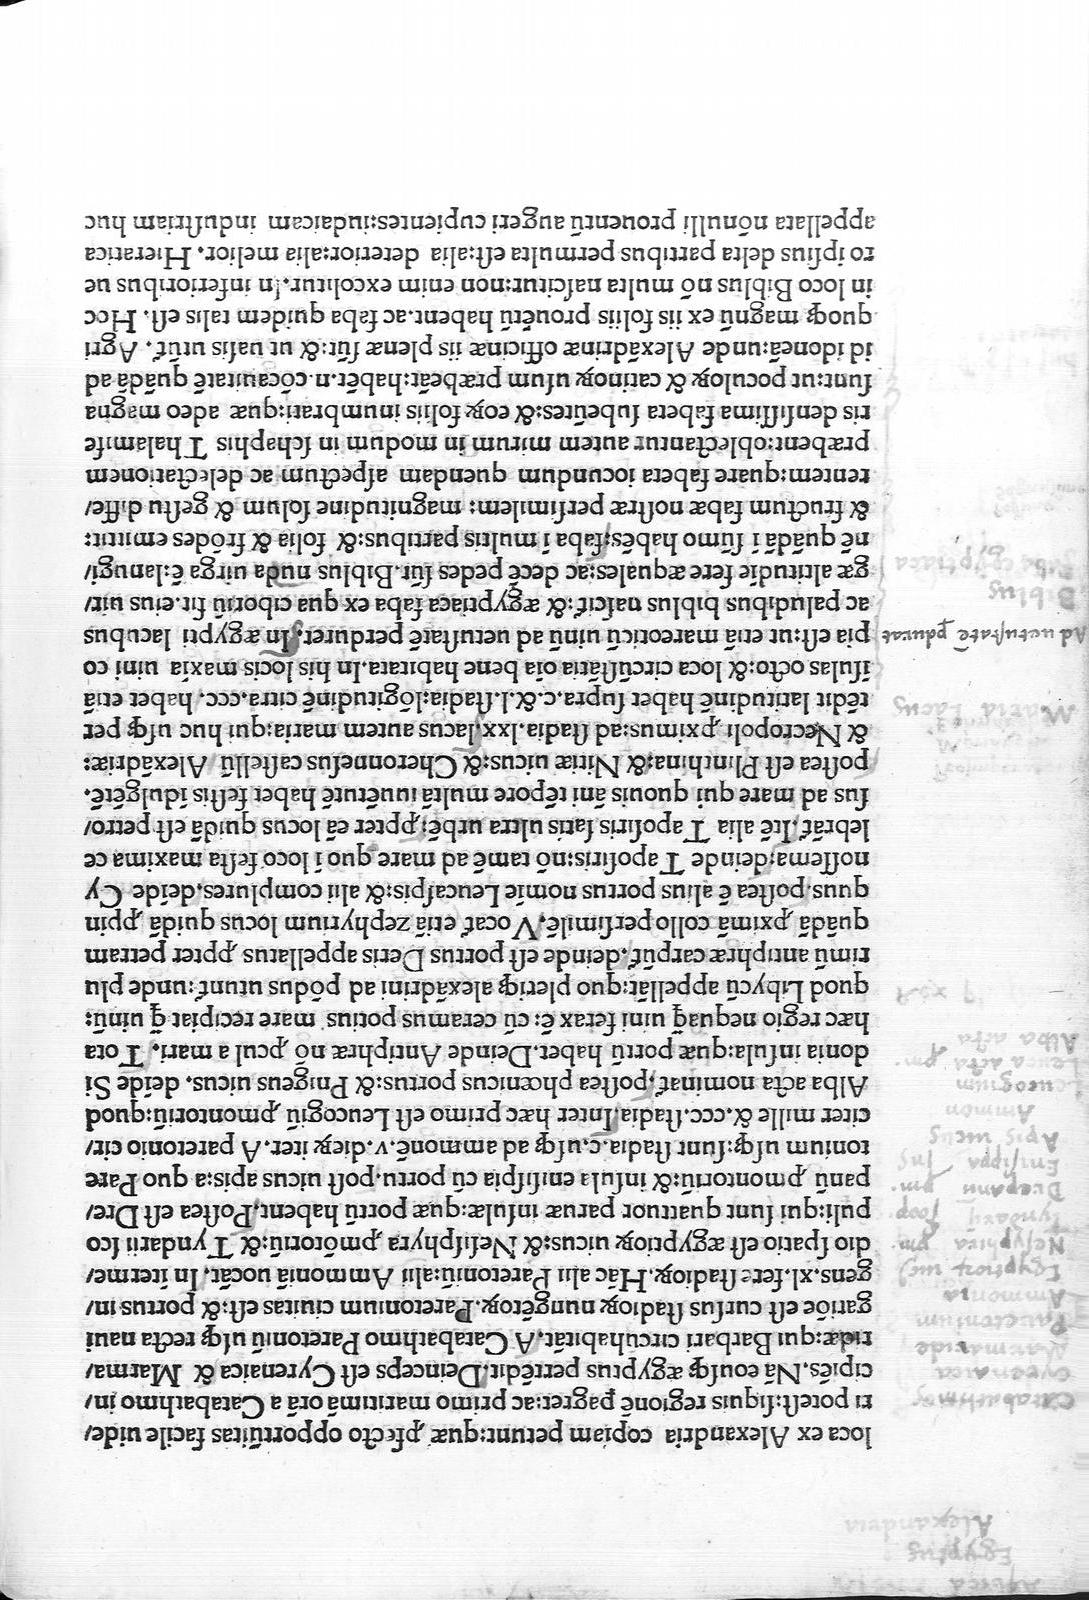 Africa
Egyptus
Alexandria
loca ex Alexandria copiam petunt: quæ ꝓfecto opportũitas facile uide/
ri poteſt: ſiquis regionẽ ꝑagret: ac primo maritimã orã a Catabathmo in/
cipiẽs. Nã eouſqꝫ ægyptus pertẽdit. Deinceps eſt Cyrenaica & Marma/
ridæ: qui Barbari circũhabitãt. A Catabathmo Paretoniũ uſqꝫ recta naui
gatiõe eſt curſus ſtadioꝝ nungẽtoꝝ. Paretonium ciuitas eſt: & portus in/
gens. xl. fere ſtadioꝝ. Hãc alii Paretoniũ: alii Ammoniã uocãt. In iterme/
dio ſpatio eſt ægyptioꝝ uicus: & Neſiſphyra ꝓmõtoriũ: & Tyndarii ſco
puli: qui ſunt quattuor paruæ inſulæ: quæ portũ habent. Poſtea eſt Dre/
panũ ꝓmontoriũ: & inſula eniſiſpia cũ portu. poſt uicus apis: a quo Pare
tonium uſqꝫ: ſunt ſtadia. c. uſqꝫ ad ammonẽ. v. dieꝝ iter. A paretonio cir/
citer mille &. ccc. ſtadia. Inter hæc primo eſt Leucogiũ ꝓmontoriũ: quod
Alba acta nominat̃. poſtea phœnicus portus: & Pnigeus uicus. deide Si
donia inſula: quæ portũ habet. Deinde Antiphræ nõ ꝓcul a mari. Tota
hæc regio nequaꝗ̃ uini ferax ẽ: cũ ceramus potius mare recipiat ꝗ̃ uinũ:
quod Libycũ appellãt: quo pleriqꝫ alexãdrini ad põdus utunt̃: unde plu
rimũ antiphræ carpũt. deinde eſt portus Deris appellatus ꝓpter petram
quãdã ꝓximã collo perſimilẽ. Vocat̃ etiã zephyrium locus quidã ꝓpin
quus. poſtea ẽ alius portus nomĩe Leucaſpis: & alii complures. deide Cy
noſſema: deinde Tapoſiris: nõ tamẽ ad mare quo ĩ loco feſta maxima ce
lebrãt̃. Itẽ alia Tapoſiris ſatis ultra urbẽ: ꝓpter eã locus quidã eſt petro/
ſus ad mare qui quouis ãni tẽpore multã iuuẽtutẽ habet feſtis idulgẽtẽ.
poſtea eſt Plinthina: & Nitiæ uicus: & Cheronneſus caſtellũ Alexãdriæ:
& Necropoli ꝓximus: ad ſtadia. lxx. lacus autem maria: qui huc uſqꝫ per
tẽdit latitudinẽ habet ſupra. c. & .l. ſtadia: lõgitudinẽ citra. ccc. habet etiã
iſulas octo: & loca circũſtãtia oĩa bene habitata. In his locis maxĩa uini co
pia eſt: ut etiã mareoticũ uinũ ad uetuſtatẽ perduret. In ægypti lacubus
ac paludibus biblus naſcit̃: & ægyptiaca faba ex qua ciboriũ fit. eius uir/
gæ altitudĩe fere æquales: ac decẽ pedes ſũt. Biblus nuda uirga ẽ: lanugi/
nẽ quãdã ĩ ſũmo habẽs: faba ĩ multis partibus: & folia & frõdes emittit:
& fructum fabæ noſtræ perſimilem: magnitudine ſolum & geſtu diffe/
rentem: quare fabeta iocundum quendam aſpectum ac delectationem
præbent: oblectantur autem mirum in modum in ſchaphis Thalamiſe
tis denſiſſima fabeta ſubeũtes: & eoꝝ foliis inumbrati: quæ adeo magna
ſunt: ut poculoꝝ & catinoꝝ uſum præbeãt: habẽt. n. cõcauitatẽ quãdã ad
id idoneã: unde Alexãdrinæ officinæ iis plenæ ſũt: & ut uaſis utũt̃. Agri
quoqꝫ magnũ ex iis foliis prouẽtũ habent. ac faba quidem talis eſt. Hoc
in loco Biblus nõ multa naſcitur: non enim excolitur. In inferioribus ue
ro ipſius delta partibus permulta eſt: alia deterior: alia melior. Hieratica
appellata nõnulli prouentũ augeri cupientes: iudaicam induſtriam huc
Catabathmos
Cyrenaica
Marmaridæ
Paretonium
Ammonia
Nesyphira
Tyndarij scop.
Drepanum
Enisippa
Apis uicus
Ammon
Leucogium
Alba acta
Maria Lacus
Ad uetustatẽ ꝑdurat
Biblus
Faba egyptiaca